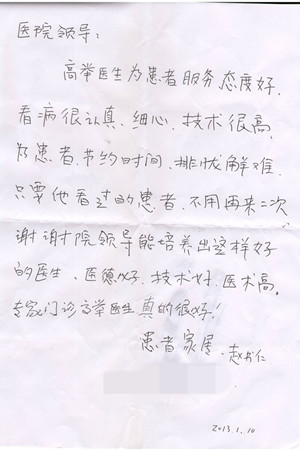 医院领导：
高举医生为患者服务态度好.
看病很认真、细心、技术很高
为患者.节约时间、排忧解难.
只要他看过的患者.不用再来二次.
谢谢院领导能培养出这样好
的医生、医德好.技术好.医术高。
专家门诊高举医生真的很好！
患者家属.赵书仁
2013.1.10